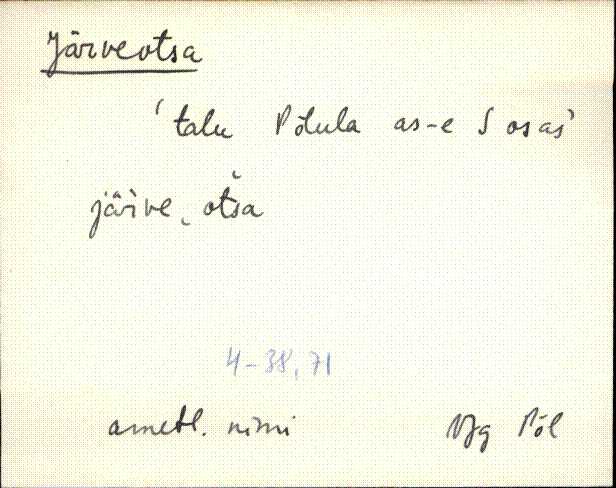 Järveotsa
'talu Põlula as-e S osas'
järve͵ otsa
4-38, 71
ametl. nimi VJg Põl